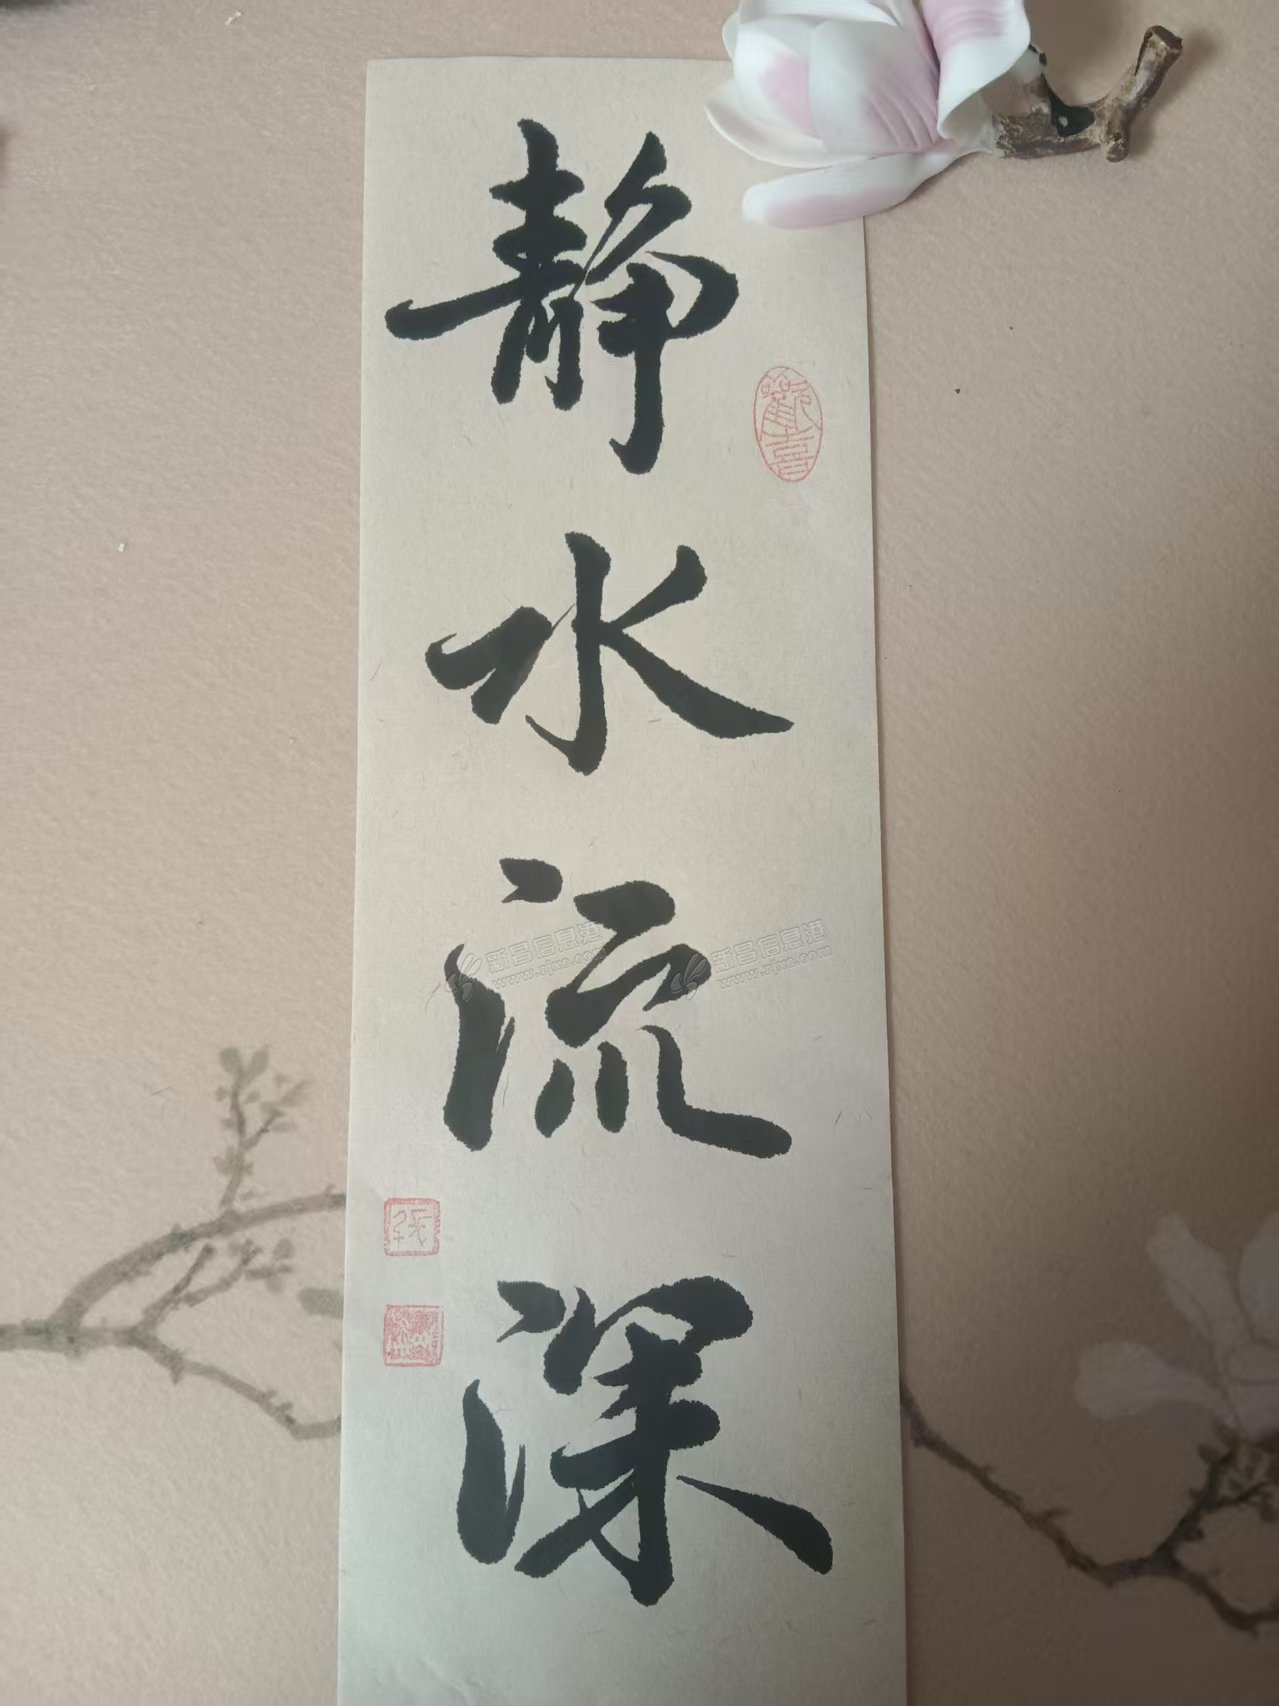 静水流深
新昌信息港
www.zjxc.com
新昌信息港
www.zjxc.com